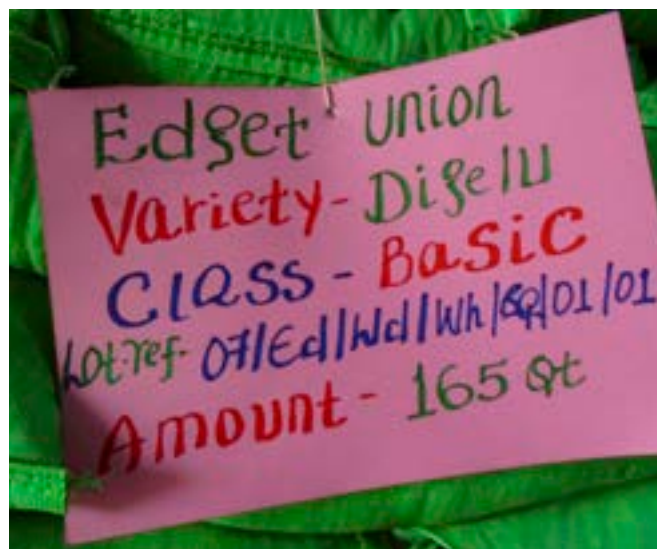 Edget Union
Variety- Digelu
Class - Basic
Lot.ref- 07/Ed/Wd/Wh/BQ/01/01
Amount - 165 Qt